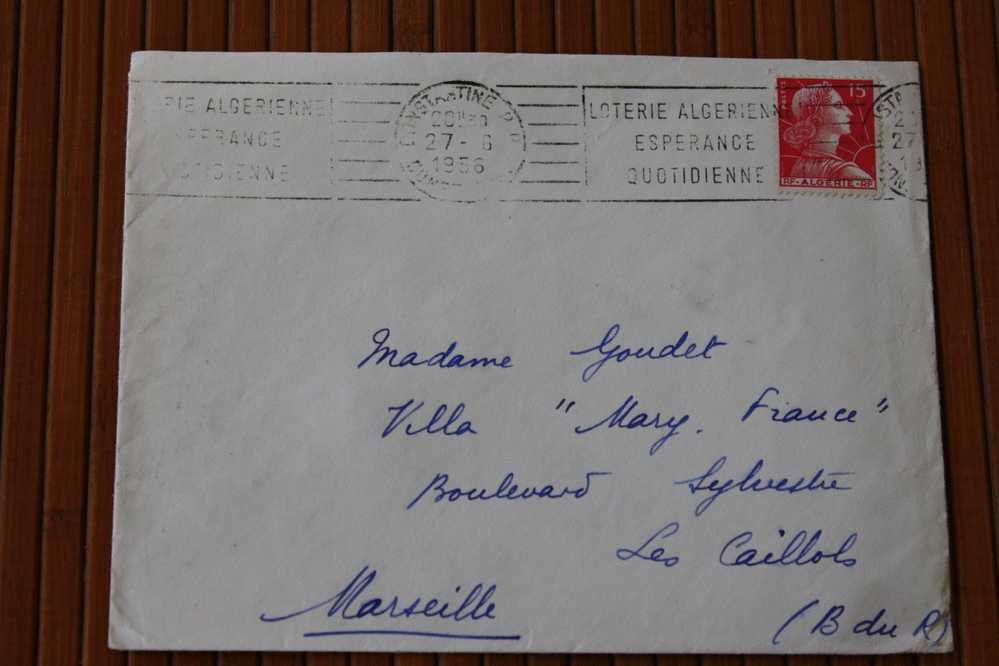 RIE ALGERIENNE
ESPERANCE
QUOTIDIENNE
CONSTANTINE R.P.
27-6
1956
LOTERIE ALGERIENNE
ESPERANCE
QUOTIDIENNE
15
RF-ALGERIE-RF
Madame Goudet
Villa "Mary. France"
Boulevard Sylvestre
Les Caillols
Marseille
(B du R)